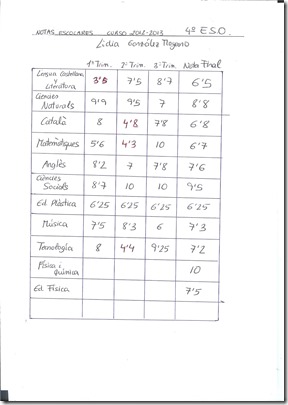 NOTAS ESCOLARES CURSO 2012-2013 4º E.S.O.
Lidia González Moyano
1ª Trim. 2ª Trim. 3ª Trim. Nota Final
Lengua Castellana
y
Literatura 3'5 7'5 8'7 6'5
Ciències
Naturals 9'9 9'5 7 8'8
Català 8 4'8 7'8 6'8
Matemàtiques 5'6 4'3 10 6'7
Anglès 8'2 7 7'8 7'6
Ciències
Socials 8'7 10 10 9'5
Ed. Plàstica 6'25 6'25 6'25 6'25
Música 7'5 8'3 6 7'3
Tecnologia 8 4'4 9'25 7'2
Física i
Química 10
Ed. Física 7'5